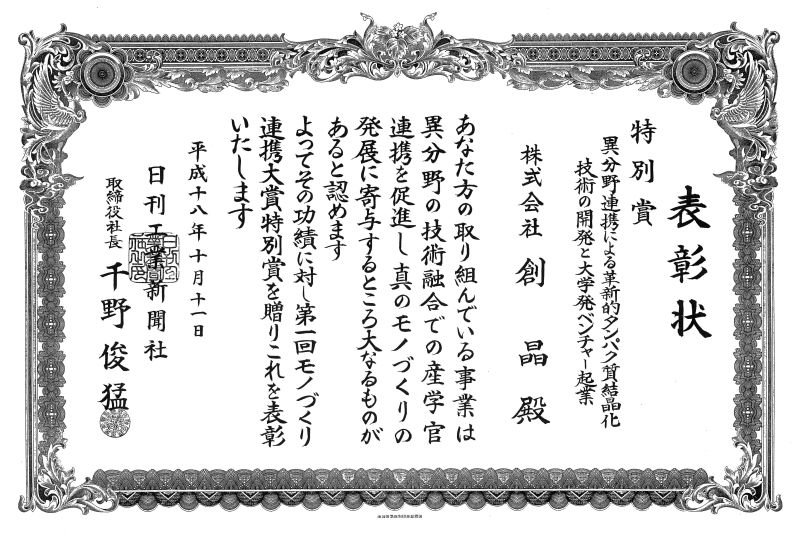 表彰状
特別賞
異分野連携による革新的タンパク質結晶化
技術の開発と大学発ベンチャー起業
株式会社 創晶殿
あなた方の取り組んでいる事業は
異分野の技術融合での産学官
連携を促進し真のモノづくりの
発展に寄与するところ大なるものが
あると認めます
よってその功績に対し第一回モノづくり
連携大賞特別賞を贈りこれを表彰
いたします
平成十八年十月十一日
日刊工業新聞社
取締役社長 千野俊猛